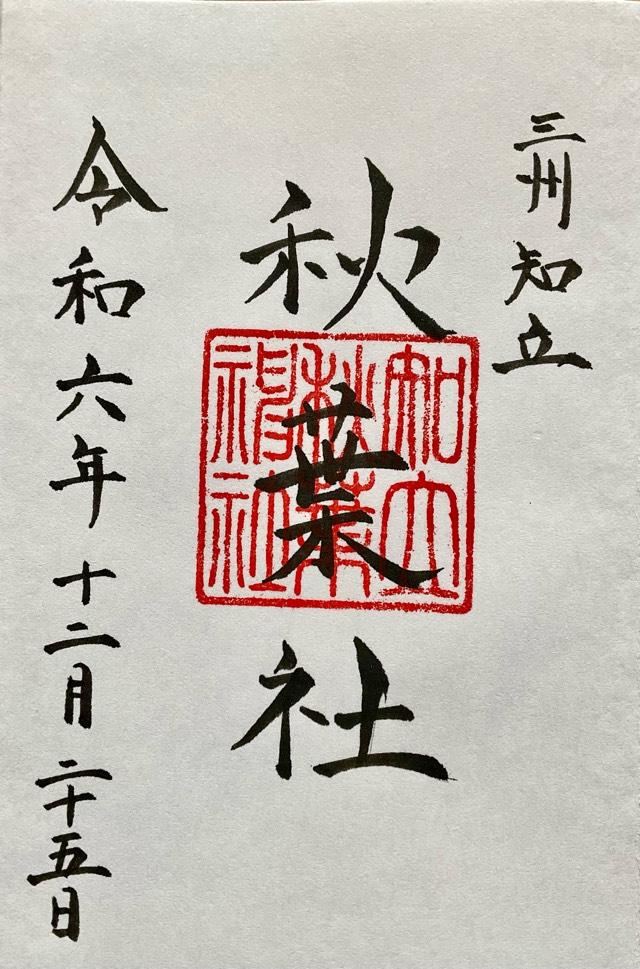 三州知立
秋葉社
知立
秋葉
神社
令和六年十二月二十五日